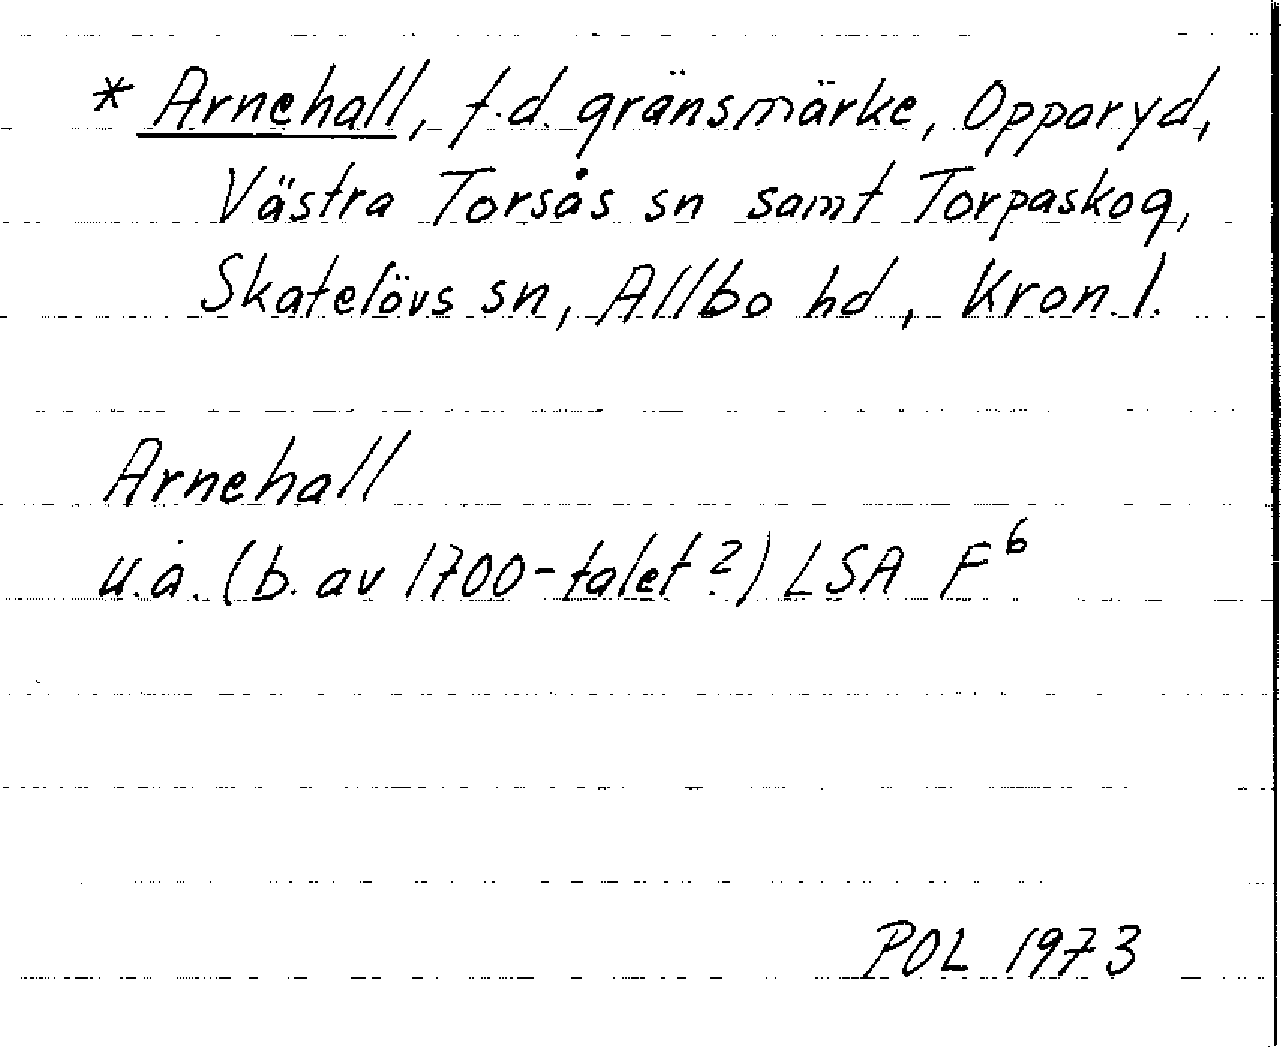 * Arnehall, f.d. gränsmärke, Opparyd,
Västra Torsås sn samt Torpaskog,
Skatelövs sn, Allbo hd, Kron. l.
Arnehall
u.å. (b. av 1700-talet?) LSA F⁶
POL 1973